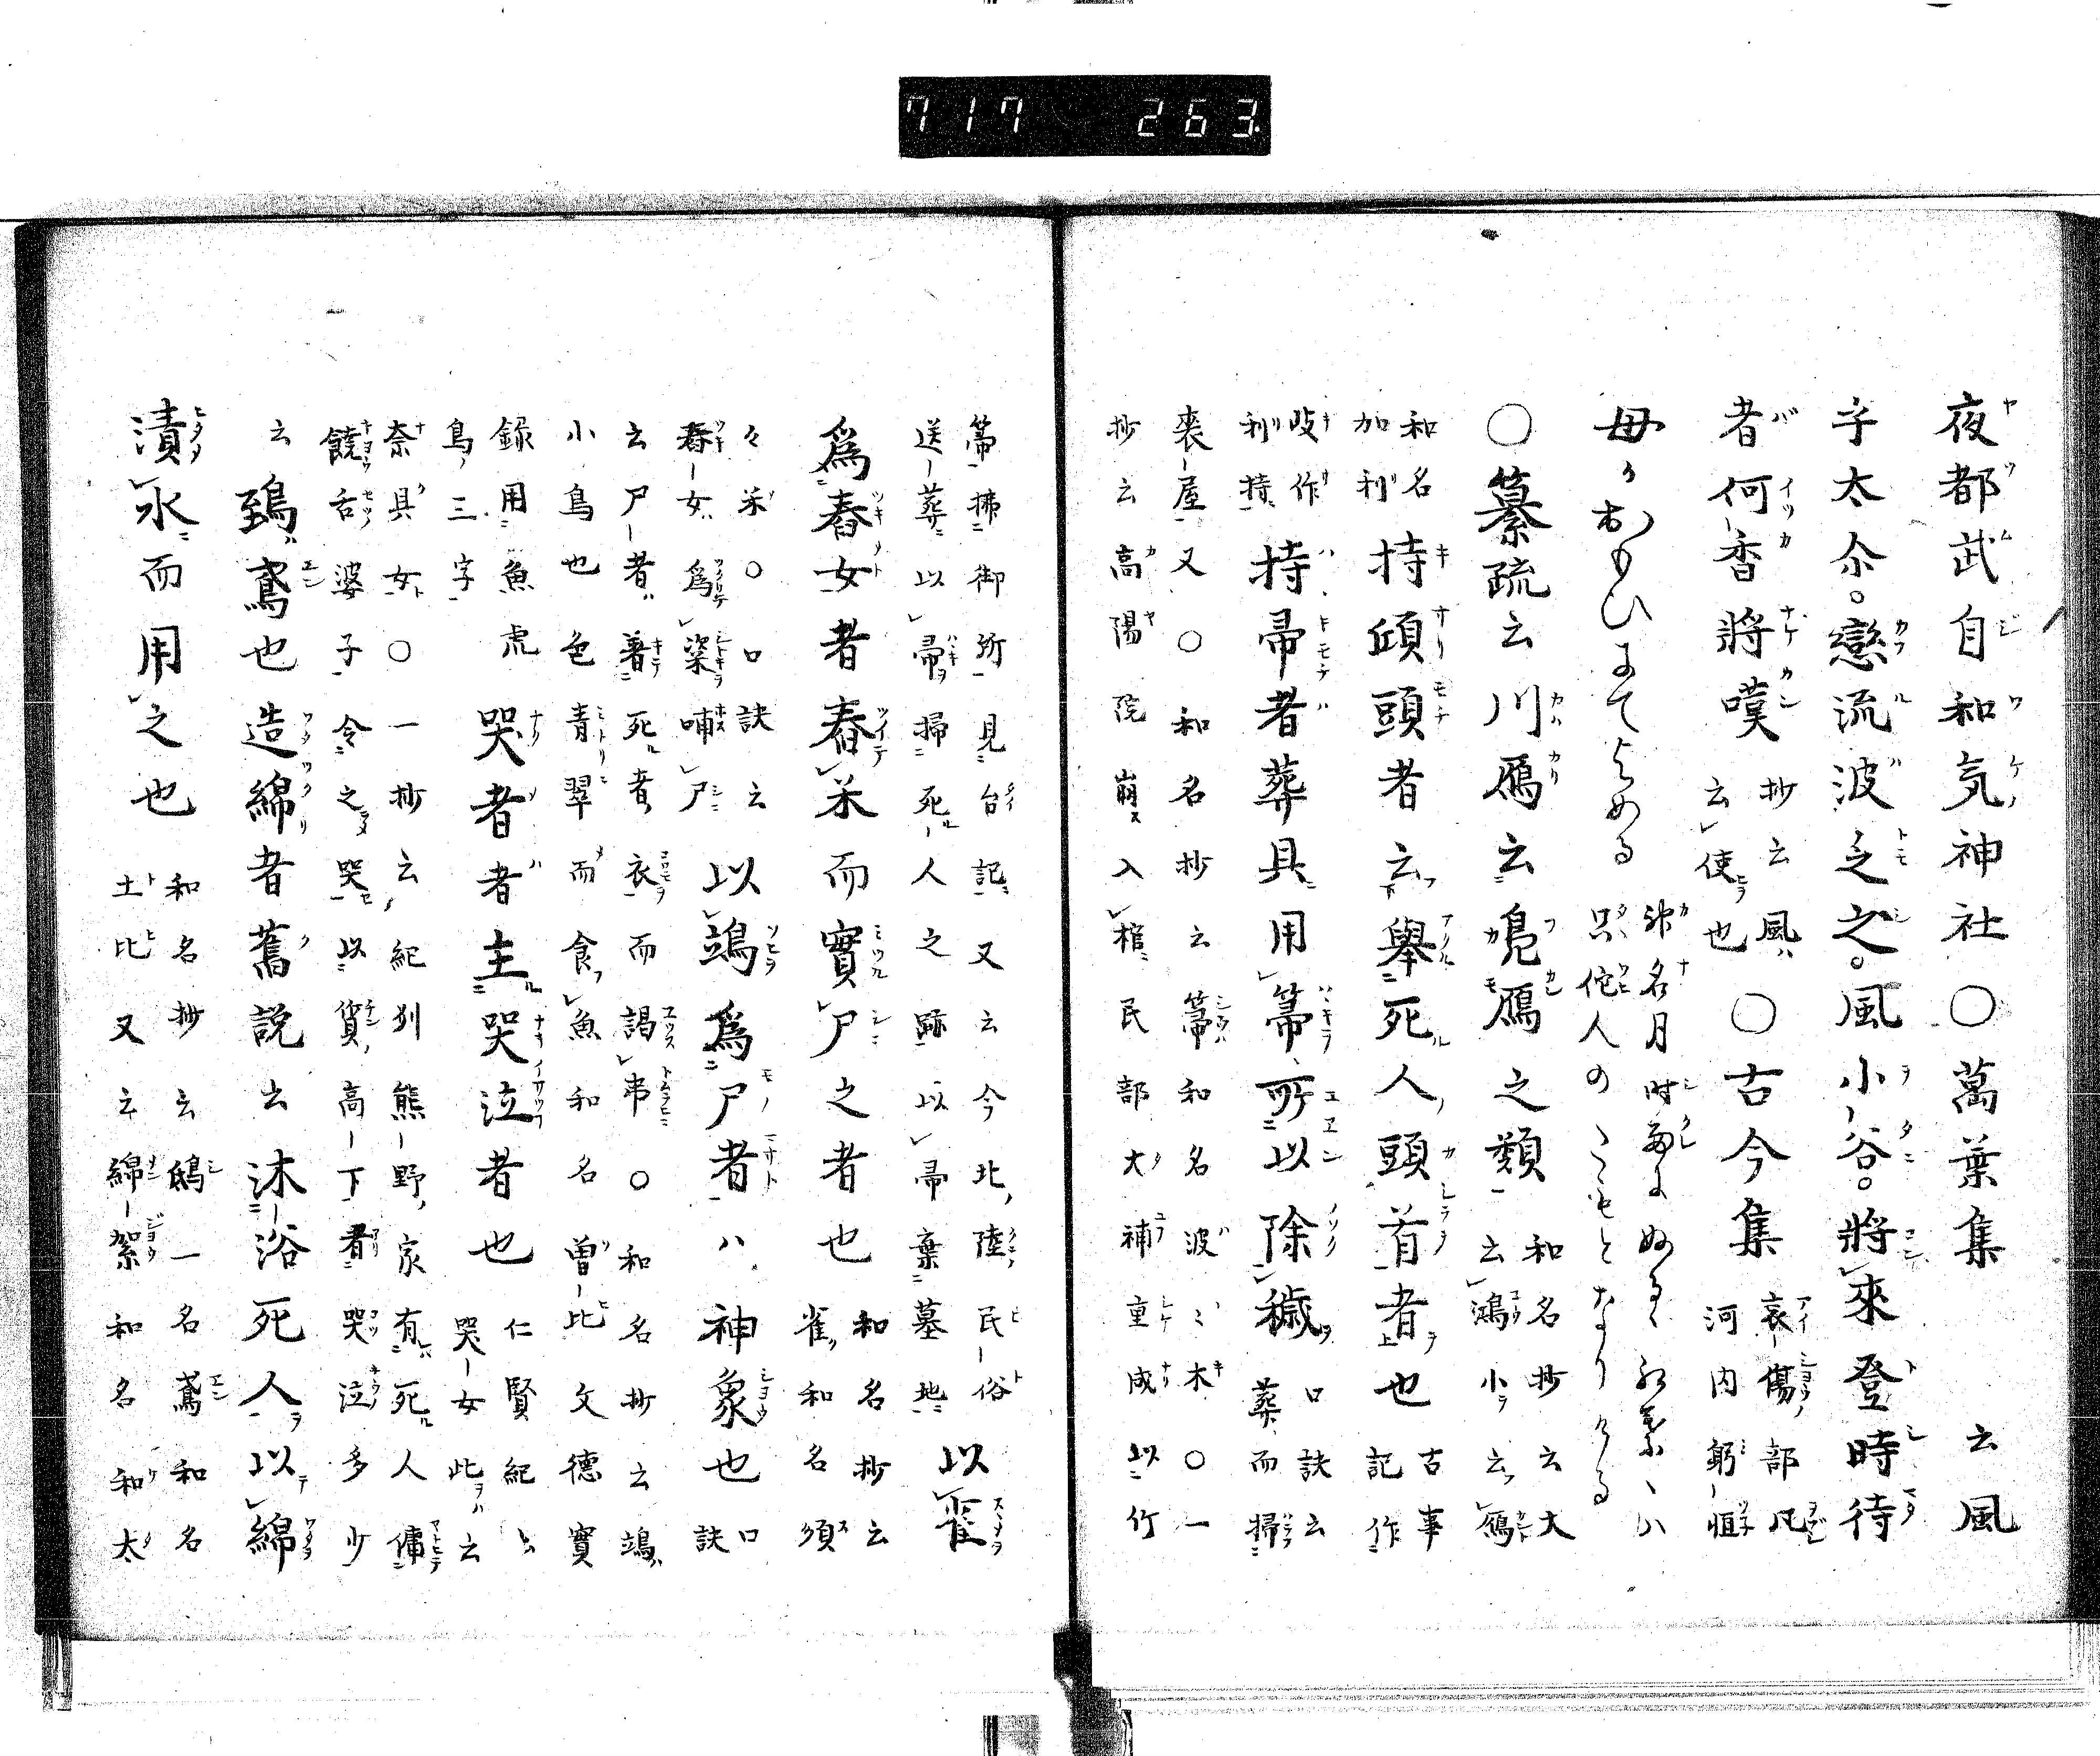 717 263
夜都武自和気神社〇萬葉集 云風
乎太尒。戀流波乏之。風小谷。將來登時待
者何香將嘆 抄云風ハ
云使也 〇古今集 哀傷部凡
河内躬恒
母のおもひにてよめる 神名月時雨にぬるゝ紅葉ゝは
只侘人のこゝもとなりける
〇纂疏云川鴈云鳧鴈之類 和名抄云大
云鴻小云鴈
和名
加利 持傾頭者云擧死人頭首者也 古事
記作
岐作
利持 持帚者葬具用箒所以除穢 口訣云
葬而掃
喪屋又〇和名抄云箒和名波ゝ木〇一
抄云高陽院崩入棺民部大補重成以竹
箒拂御所見台記又云今北陸民俗
送葬以帚掃死人之跡以帚棄墓地 以雀
爲舂女者舂米而實尸之者也 和名抄云
雀和名須
々米〇口訣云
舂女爲粢哺尸 以鴗爲尸者ハ神象也 口
訣
云尸者著死者衣而謁弔〇和名抄云鴗
小鳥也色青翠而食魚和名曽比文德實
録用魚虎
鳥三字 哭者者主哭泣者也 仁賢紀
哭女此云
奈具女〇一抄云紀刕熊野家有死人傭
饒舌婆子令之哭以質高下者哭泣多少
云鵄鳶也造綿者舊説云沐浴死人以綿
漬水而用之也 和名抄云鵄一名鳶和名
土比又云綿絮和名和太